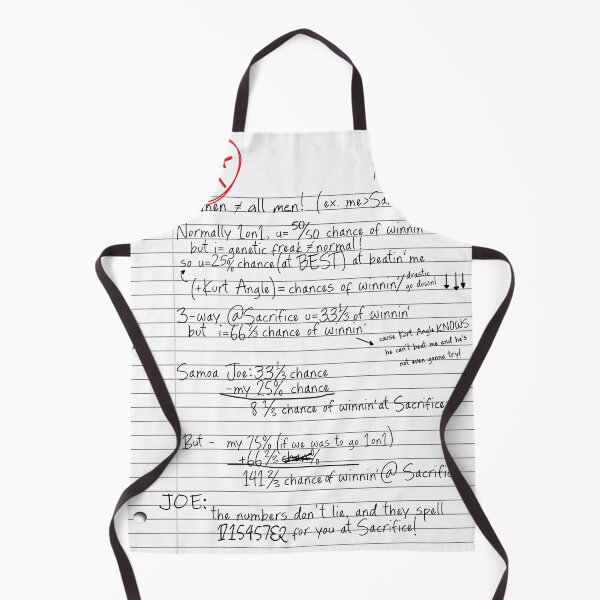 men ≠ all men! (ex. me>Sa
Normally 1on1, u= 50/50 chance of winnin'
but i= genetic freak ≠ normal!
so u=25% chance (at BEST) at beatin' me
(+Kurt Angle) = chances of winnin' drastic go down! ↓↓↓
3-way @ Sacrifice u=33 1/3 of winnin'
but i=66 2/3 chance of winnin'
cause Kurt Angle KNOWS
he can't beat me and he's
not even gonna try!
Samoa Joe: 33 1/3 chance
-my 25% chance
8 1/3 chance of winnin' at Sacrifice
But - my 75% (if we was to go 1on1)
+66 2/3 %
141 2/3 chance of winnin' @ Sacrific
JOE: the numbers don't lie, and they spell
for you at Sacrifice!